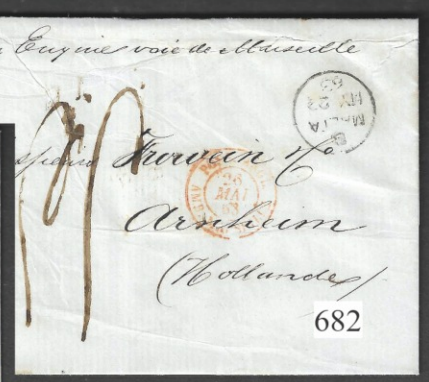 Eugenie voie de Marseille
MALTA
B
MY 22
63
Frowein & Co
26
MAI
63
Arnheim
(Hollande)
682